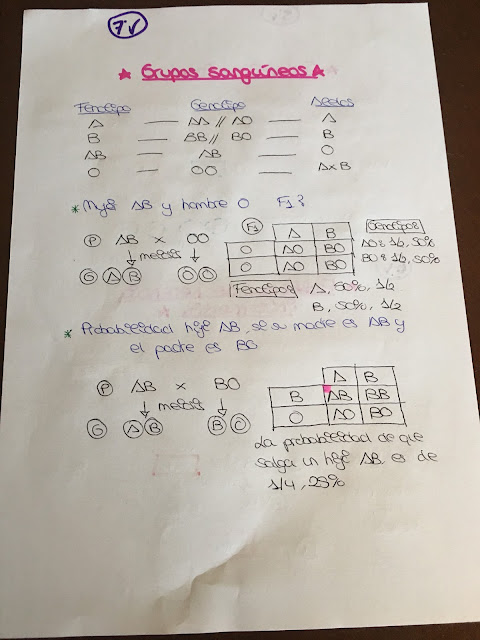 7V
★ Grupos sanguíneos ★
Fenotipo Genotipo Alelos
A — AA // AO — A
B — BB // BO — B
AB — AB — O
O — OO — A x B
* Mujer AB y hombre O F1?
P AB x OO
meiosis
G A B O O
F1 A B
O AO BO
O AO BO
Genotipos
AO: 1/2, 50%
BO: 1/2, 50%
Fenotipos A, 50%, 1/2
B, 50%, 1/2
* Probabilidad hijo AB, si su madre es AB y
el padre es BO
P AB x BO
meiosis
G A B B O
A B
B AB BB
O AO BO
La probabilidad de que
salga un hijo AB es de
1/4, 25%